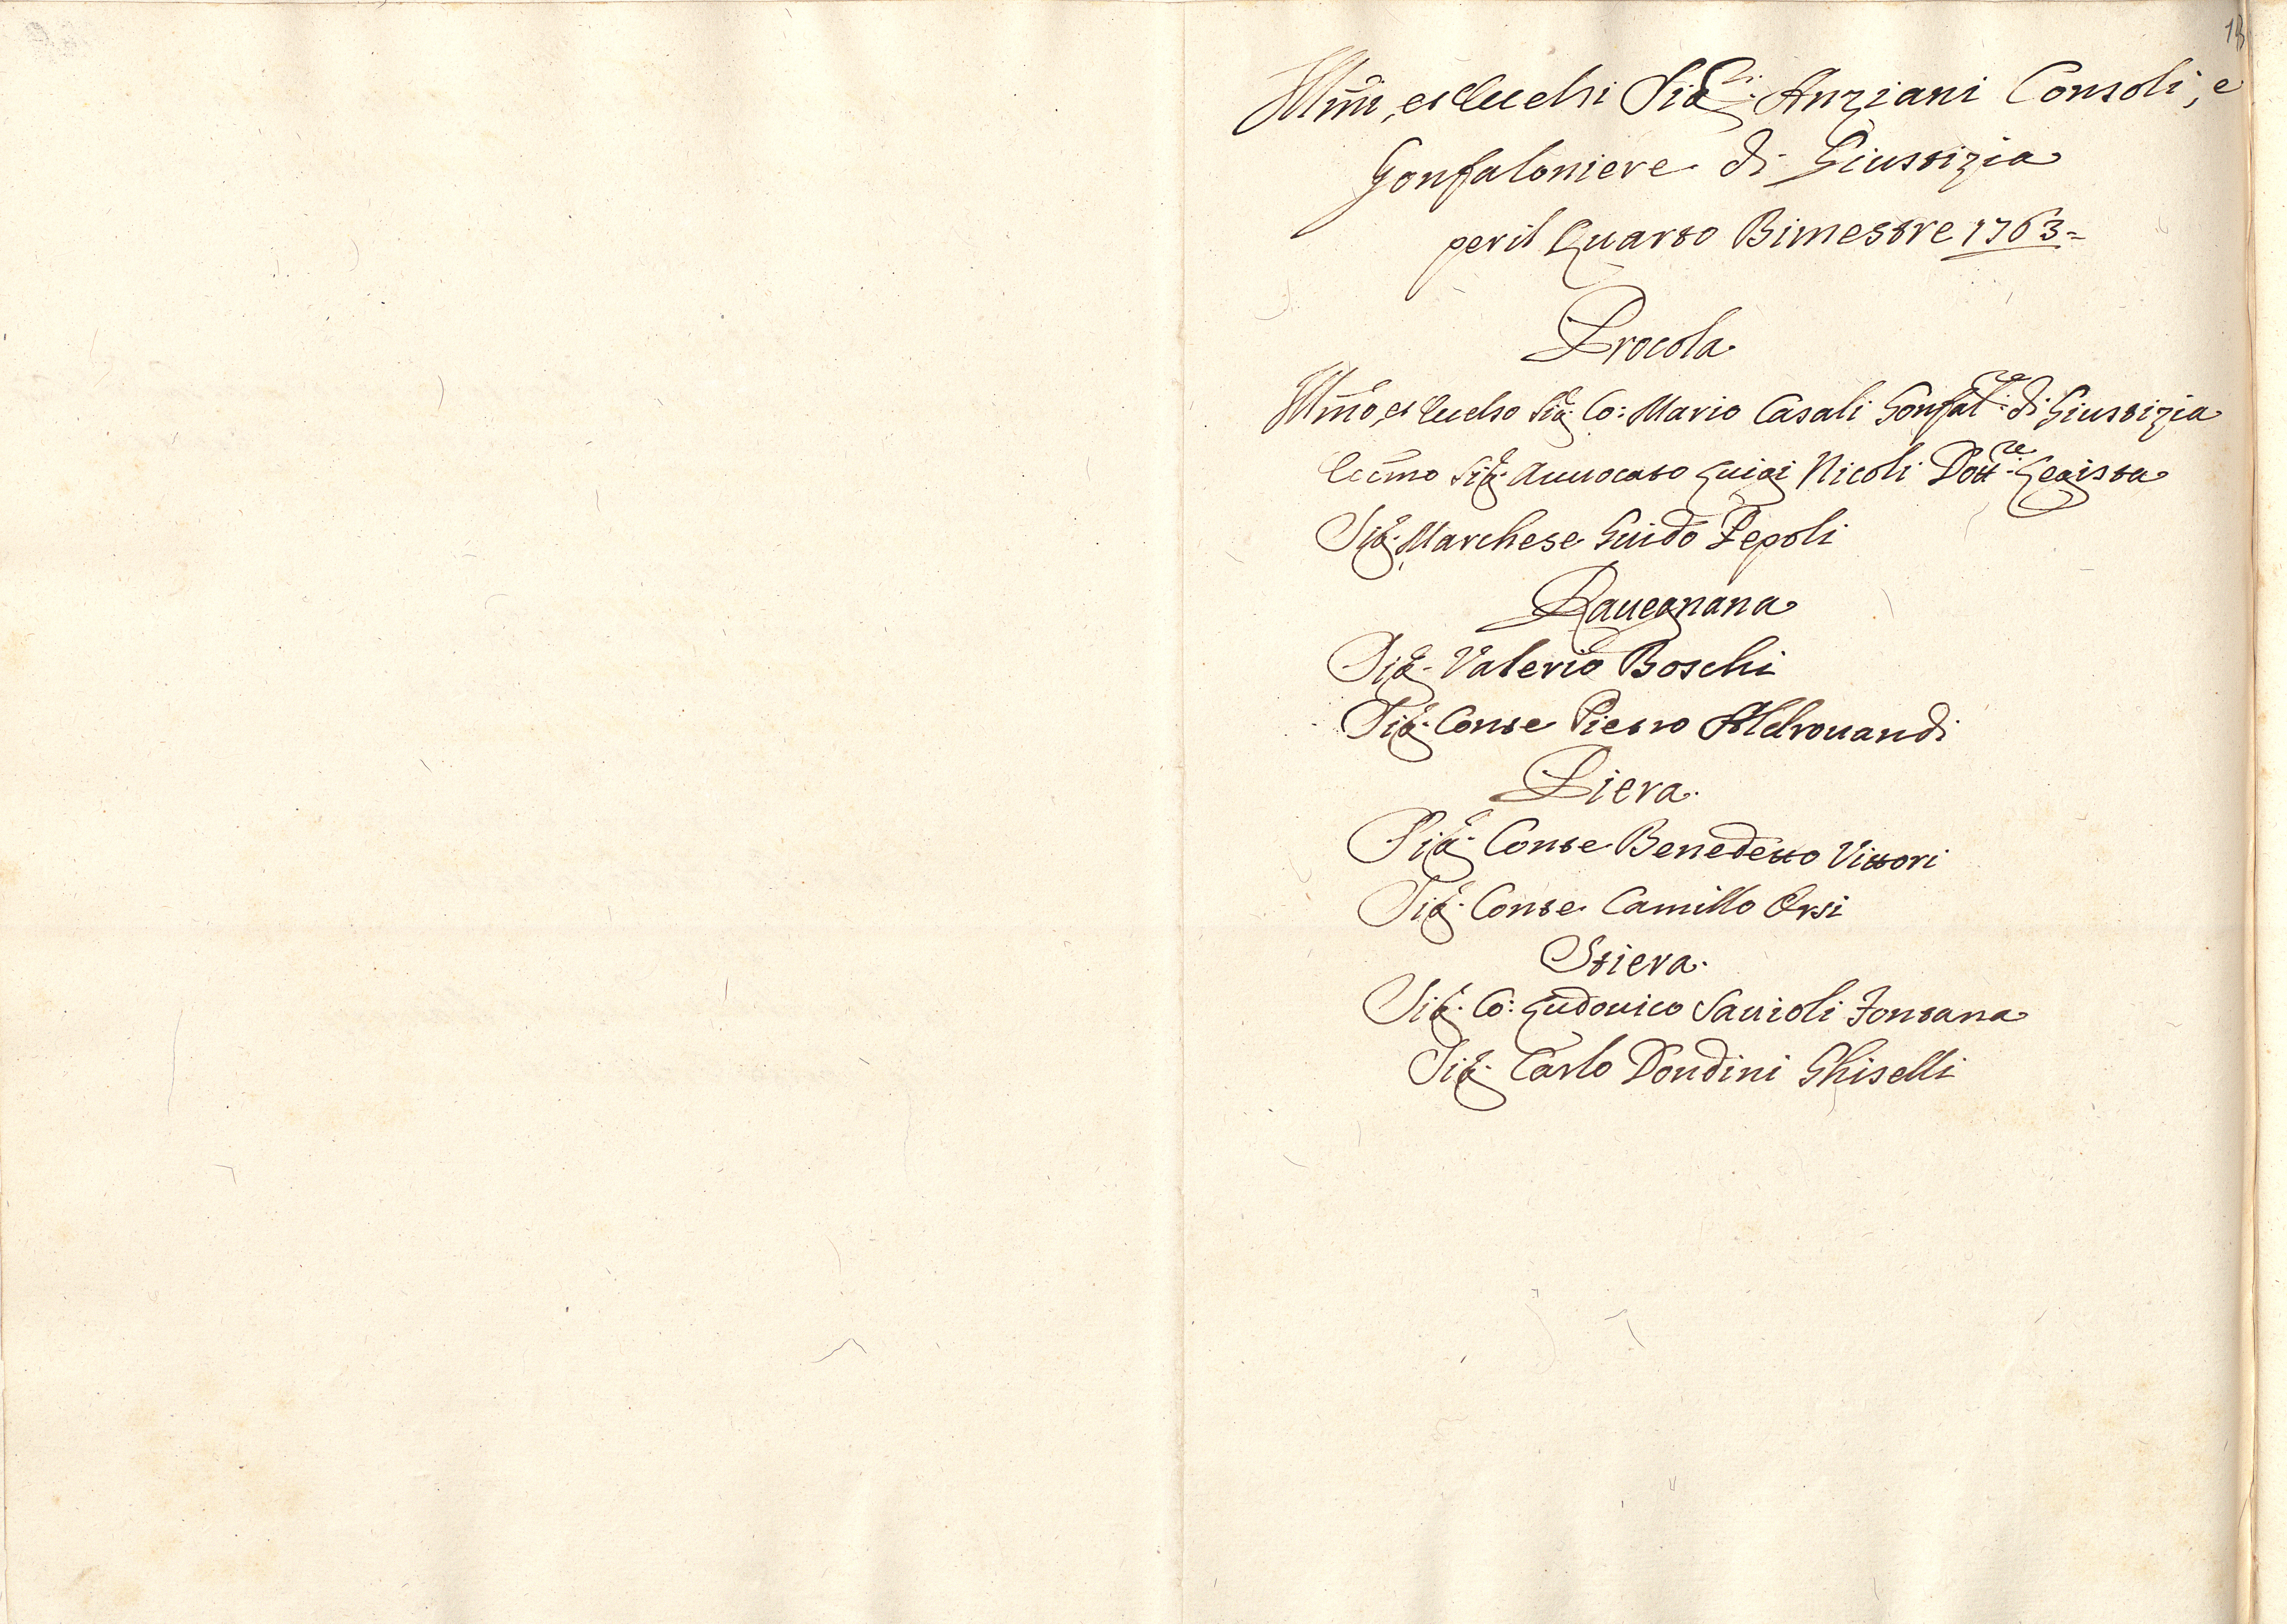 Illm̃i, et Eccelsi Sigri: Anziani Consoli, e
Gonfaloniere di Giustizia
per il Quarto Bimestre 1763=
Procola
Illm̃o, et Eccelso Sigr. Co: Mario Casali Gonfalre: di Giustizia
Eccm̃o Sigr. Auuocato Luigi Nicoli Dottre: Legista
Sigr. Marchese Guido Pepoli
Rauegnana
Sigr. Valerio Boschi
Sigr. Conte Pietro Aldrouandi
Piera
Sigr. Conte Benedetto Vittori
Sigr. Conte Camillo Orsi
Stiera
Sigr. Co: Ludouico Sauioli Fontana
Sigr. Carlo Dondini Ghiselli